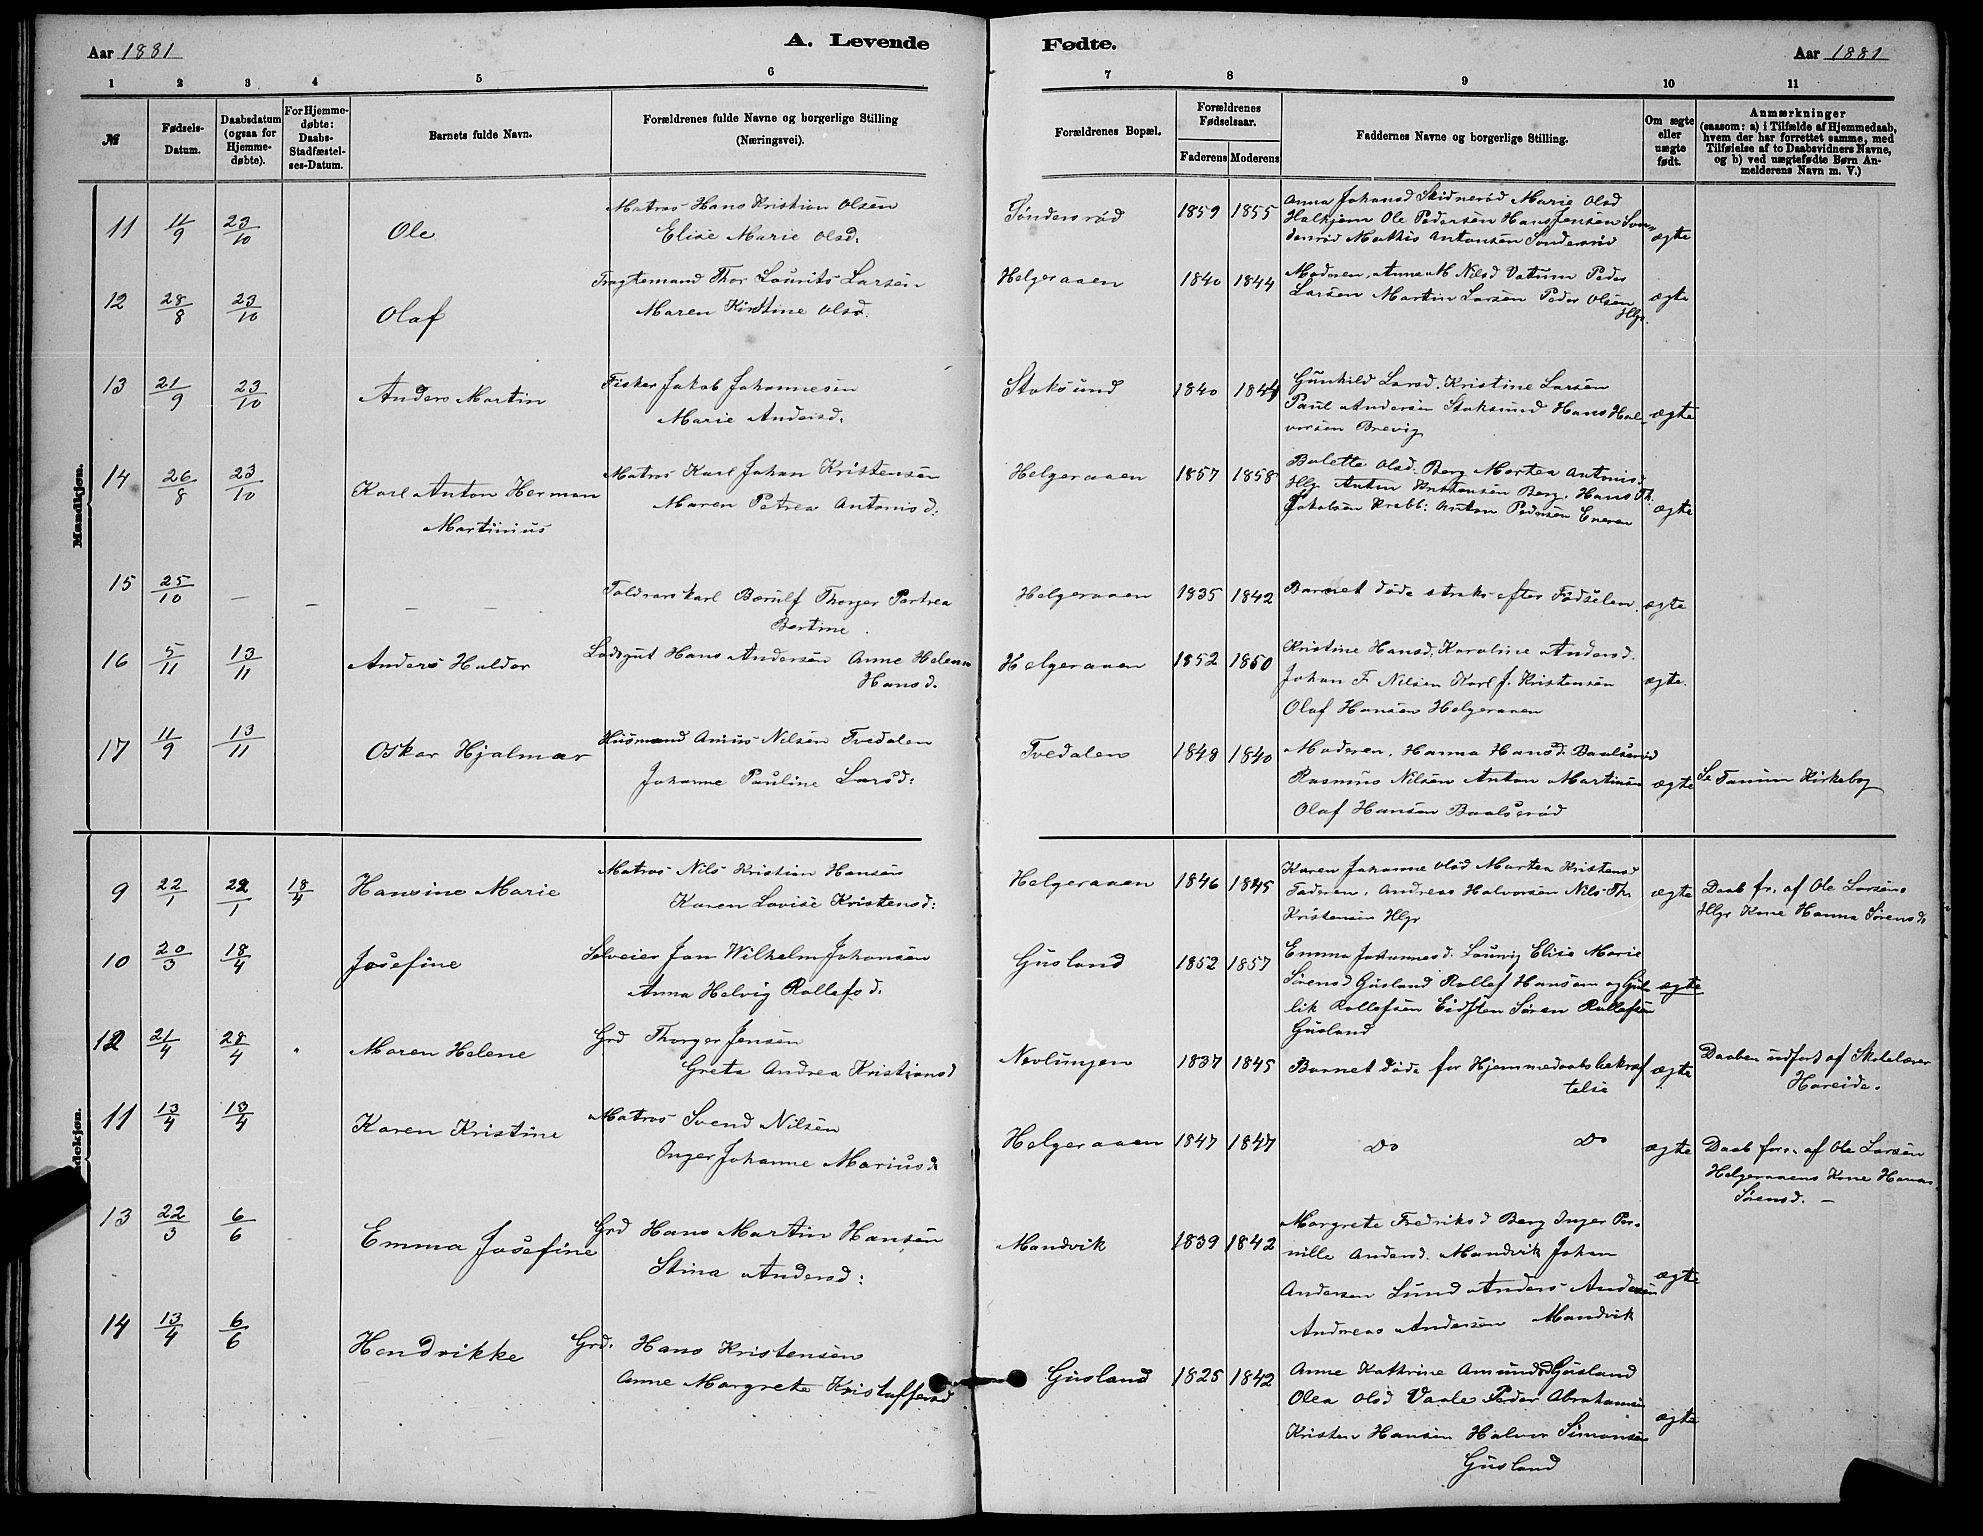 Aar 1881
A. Levende
Fødte.
Aar 1881
1 2 3 4 5 6 7 8 9 10 11
№
Fødsels-Datum.
Daabsdatum (ogsaa for Hjemmedøbte).
For Hjemmedøbte: Daabs-Stadfæstelses-Datum.
Barnets fulde Navn.
Forældrenes fulde Navne og borgerlige Stilling (Næringsvei).
Forældrenes Bopæl.
Forældrenes Fødselsaar.
Faderens Moderens
Faddernes Navne og borgerlige Stilling.
Om ægte eller uægte født.
Anmærkninger
(saasom: a) i Tilfælde af Hjemmedaab,
hvem der har forrettet samme, med
Tilføielse af to Daabsvidners Navne,
og b) ved uægtefødte Børn Anmelderens Navn m. V.)
Mandkjøn.
11 11/9 23/10 Ole
Matros Hans Kristian Olsen
Elise Marie Olsd.
Søndersrød 1859 1855
Anna Johansd Skidnerød Marie Olsd
Halkjem Ole Pedersen Hans Jensen Søn-
dersrød Mathis Antonsen Søndersrød
ægte
12 28/8 23/10 Olaf
Fragtemand Thor Lourits Larsen
Maren Kirstine Olsd.
Helgeraaen 1840 1844
Moderen, Anne M Nilsd Vatum Peder
Larsen Martin Larsen Peder Olsen
Hlgr.
ægte
13 21/9 23/10 Anders Martin
Fisker Jakob Johannesen
Marie Andersd.
Stoksund 1840 1844
Gunhild Larsd. Kristine Larsen
Paul Andersen Stoksund Hans Hal-
vorsen Brevig
ægte
14 26/8 23/10 Karl Anton Herman
Martinius
Matros Karl Johan Kristensen
Maren Petrea Antonisd.
Helgeraaen 1857 1858
Bolette Olsd. Berg Martea Antonisd
Hlgr Anton Kristensen Berg, Hans Th.
Jakobsen Krabb: Anton Pedersen Eneren
ægte
15 25/10 – – – –
Toldrorskarl Børulf Thorger Petrea
Bertine.
Helgeraaen 1835 1842
Barnet døde straks efter Fødselen.
ægte
16 5/11 13/11 Anders Haldor
Lodsgut Hans Andersen Anne Helene
Hansd.
Helgeraaen 1852 1860
Kristine Hansd. Karoline Andersd.
Johan F. Nilsen Karl J. Kristensen
Olaf Hansen Helgeraaen
ægte.
17 11/9 13/11 Oskar Hjalmar
Husmand Anius Nilsen Tvedalen
Johanne Pauline Larsd:
Tvedalen 1848 1840
Moderen, Hanna Hansd. Baalsrød
Rasmus Nilsen Anton Martinsen
Olaf Hansen Baalsrød
ægte
Se Tanum Kirkebog
9 22/1 22/1 18/4 Hansine Marie
Matros Nils Kristian Hansen
Karen Lovise Kristensd:
Helgeraaen 1846 1845
Karen Johanne Olsd Martea Kristensd
Fadren, Andreas Halvorsen Nils Th.
Kristensen Hlgr
ægte
Daab fr. af Ole Larsens
Hlgr Kone Hanna Sørensd.
10 20/3 18/4 Josefine
Selveier Jon Wilhelm Johansen
Anna Helvig Rollefsd.
Gusland 1852 1857
Emma Johannesd. Laurvig Elise Marie
Sørensd Gusland Rollef Hansen og Gul-
lik Rollefsen Eidsten Søren Rollefsen
Gusland
ægte
12 21/4 28/4 Maren Helene
Grd Thorger Jensen
Greta Andrea Kristiansd
Nevlungen 1837 1845
Barnet døde før Hjemmedaabsbekræf
telse
ægte
Daaben udført af Skolelærer
Hareide.
ndekjøn.
11 13/4 13/4 Karen Kristine
Matros Svend Nilsen
Inger Johanne Mariusd.
Helgeraaen 1847 1847
Do Do
ægte
Daab forr. af Ole Larsen
Helgeraaens Kone Hanna
Sørensd. –
13 22/3 6/6 Emma Josefine
Grd Hans Martin Hansen
Stina Andersd:
Mandvik 1839 1842
Margrete Fredriksd Berg Inger Per-
nille Andersd. Mandvik Johan
Andersen Lund Anders Andersen
Andreas Andersen Mandvik
ægte
14 13/4 6/6 Hendrikke
Grd. Hans Kristensen
Anne Margrete Kristoffersd
Gusland 1825 1842
Anne Kathrine Amundsd Gusland
Olea Olsd Vaale Peder Abrahamsen
Kristen Hansen Halvor Simonsen
Gusland
ægte